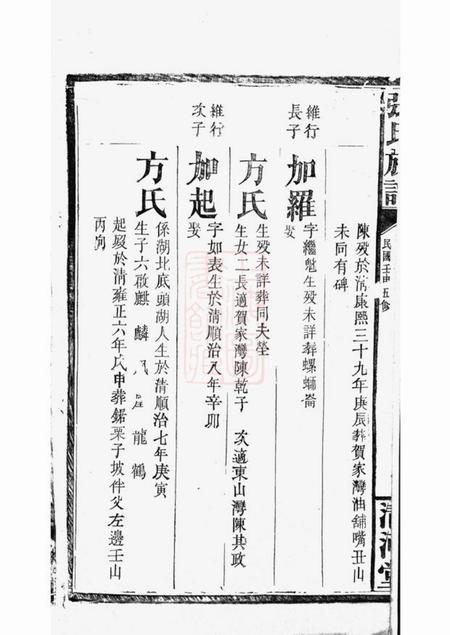 張氏族譜
民國壬申五修
清河堂
陳歿於清康熙三十九年庚辰葬賀家灣油舖嘴丑山
未向有碑
維行
長子
加羅
字繼魁生歿未詳葬螺螄崙
娶
方氏
生歿未詳葬同夫塋
生女二長適賀家灣陳乾子 次適東山灣陳其政
維行
次子
加起
字如表生於清順治八年辛卯
娶
方氏
係湖北底頭湖人生於清順治七年庚寅
生子六啟麒 麟 鳳 龍 鶴
起歿於清雍正六年氏申葬鋸栗子坡伴父左邊壬山
丙向